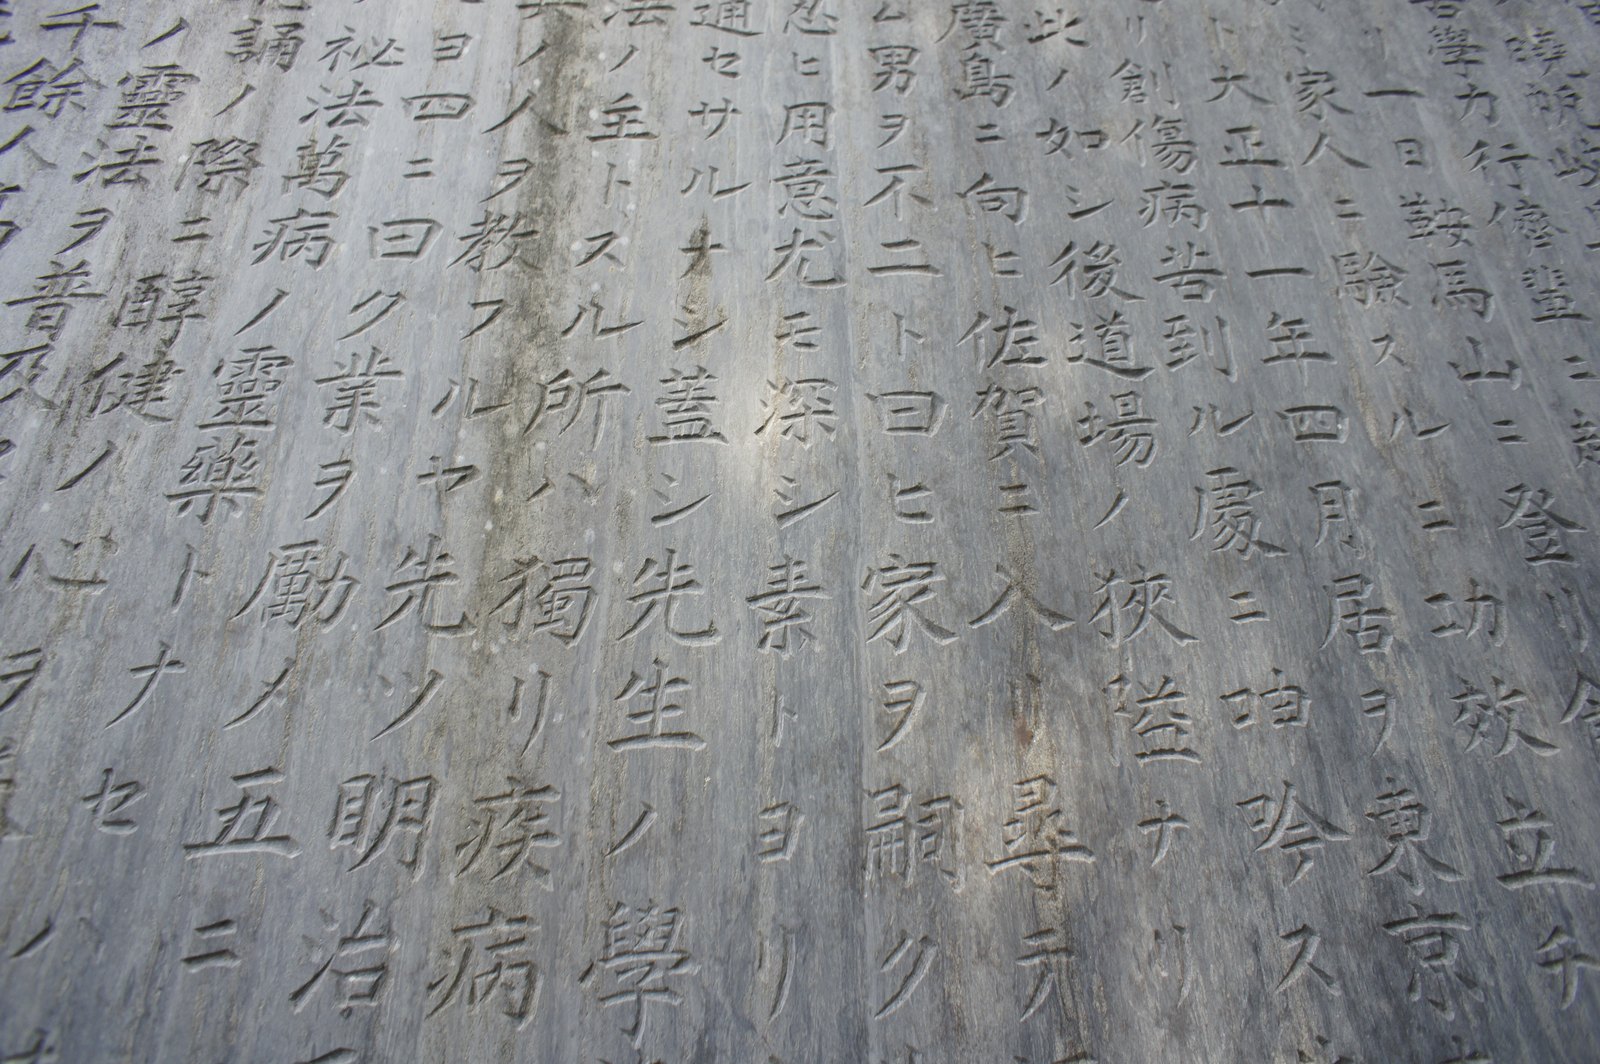 曉
苦學力行儕輩ニ超
一日鞍馬山ニ登リ食
家人ニ驗スルニ功效立チ
ト大正十一年四月居ヲ東京
リ創傷病苦到ル處ニ呻吟ス
此ノ如シ後道場ノ狹隘ナリ
廣島ニ向ヒ佐賀ニ入リ尋テ
男ヲ不二ト曰ヒ家ヲ嗣ク
忍ヒ用意尤モ深シ素トヨリ
通セサルナシ蓋シ先生ノ學
法ノ主トスル所ハ獨リ疾病
ノ人ヲ教フルヤ先ツ明治
ヨ四ニ曰ク業ヲ勵メ五ニ
祕法萬病ノ靈藥トナセハ
誦ノ際ニ醇健ノ心ヲ
ノ靈法ヲ普及
千餘人